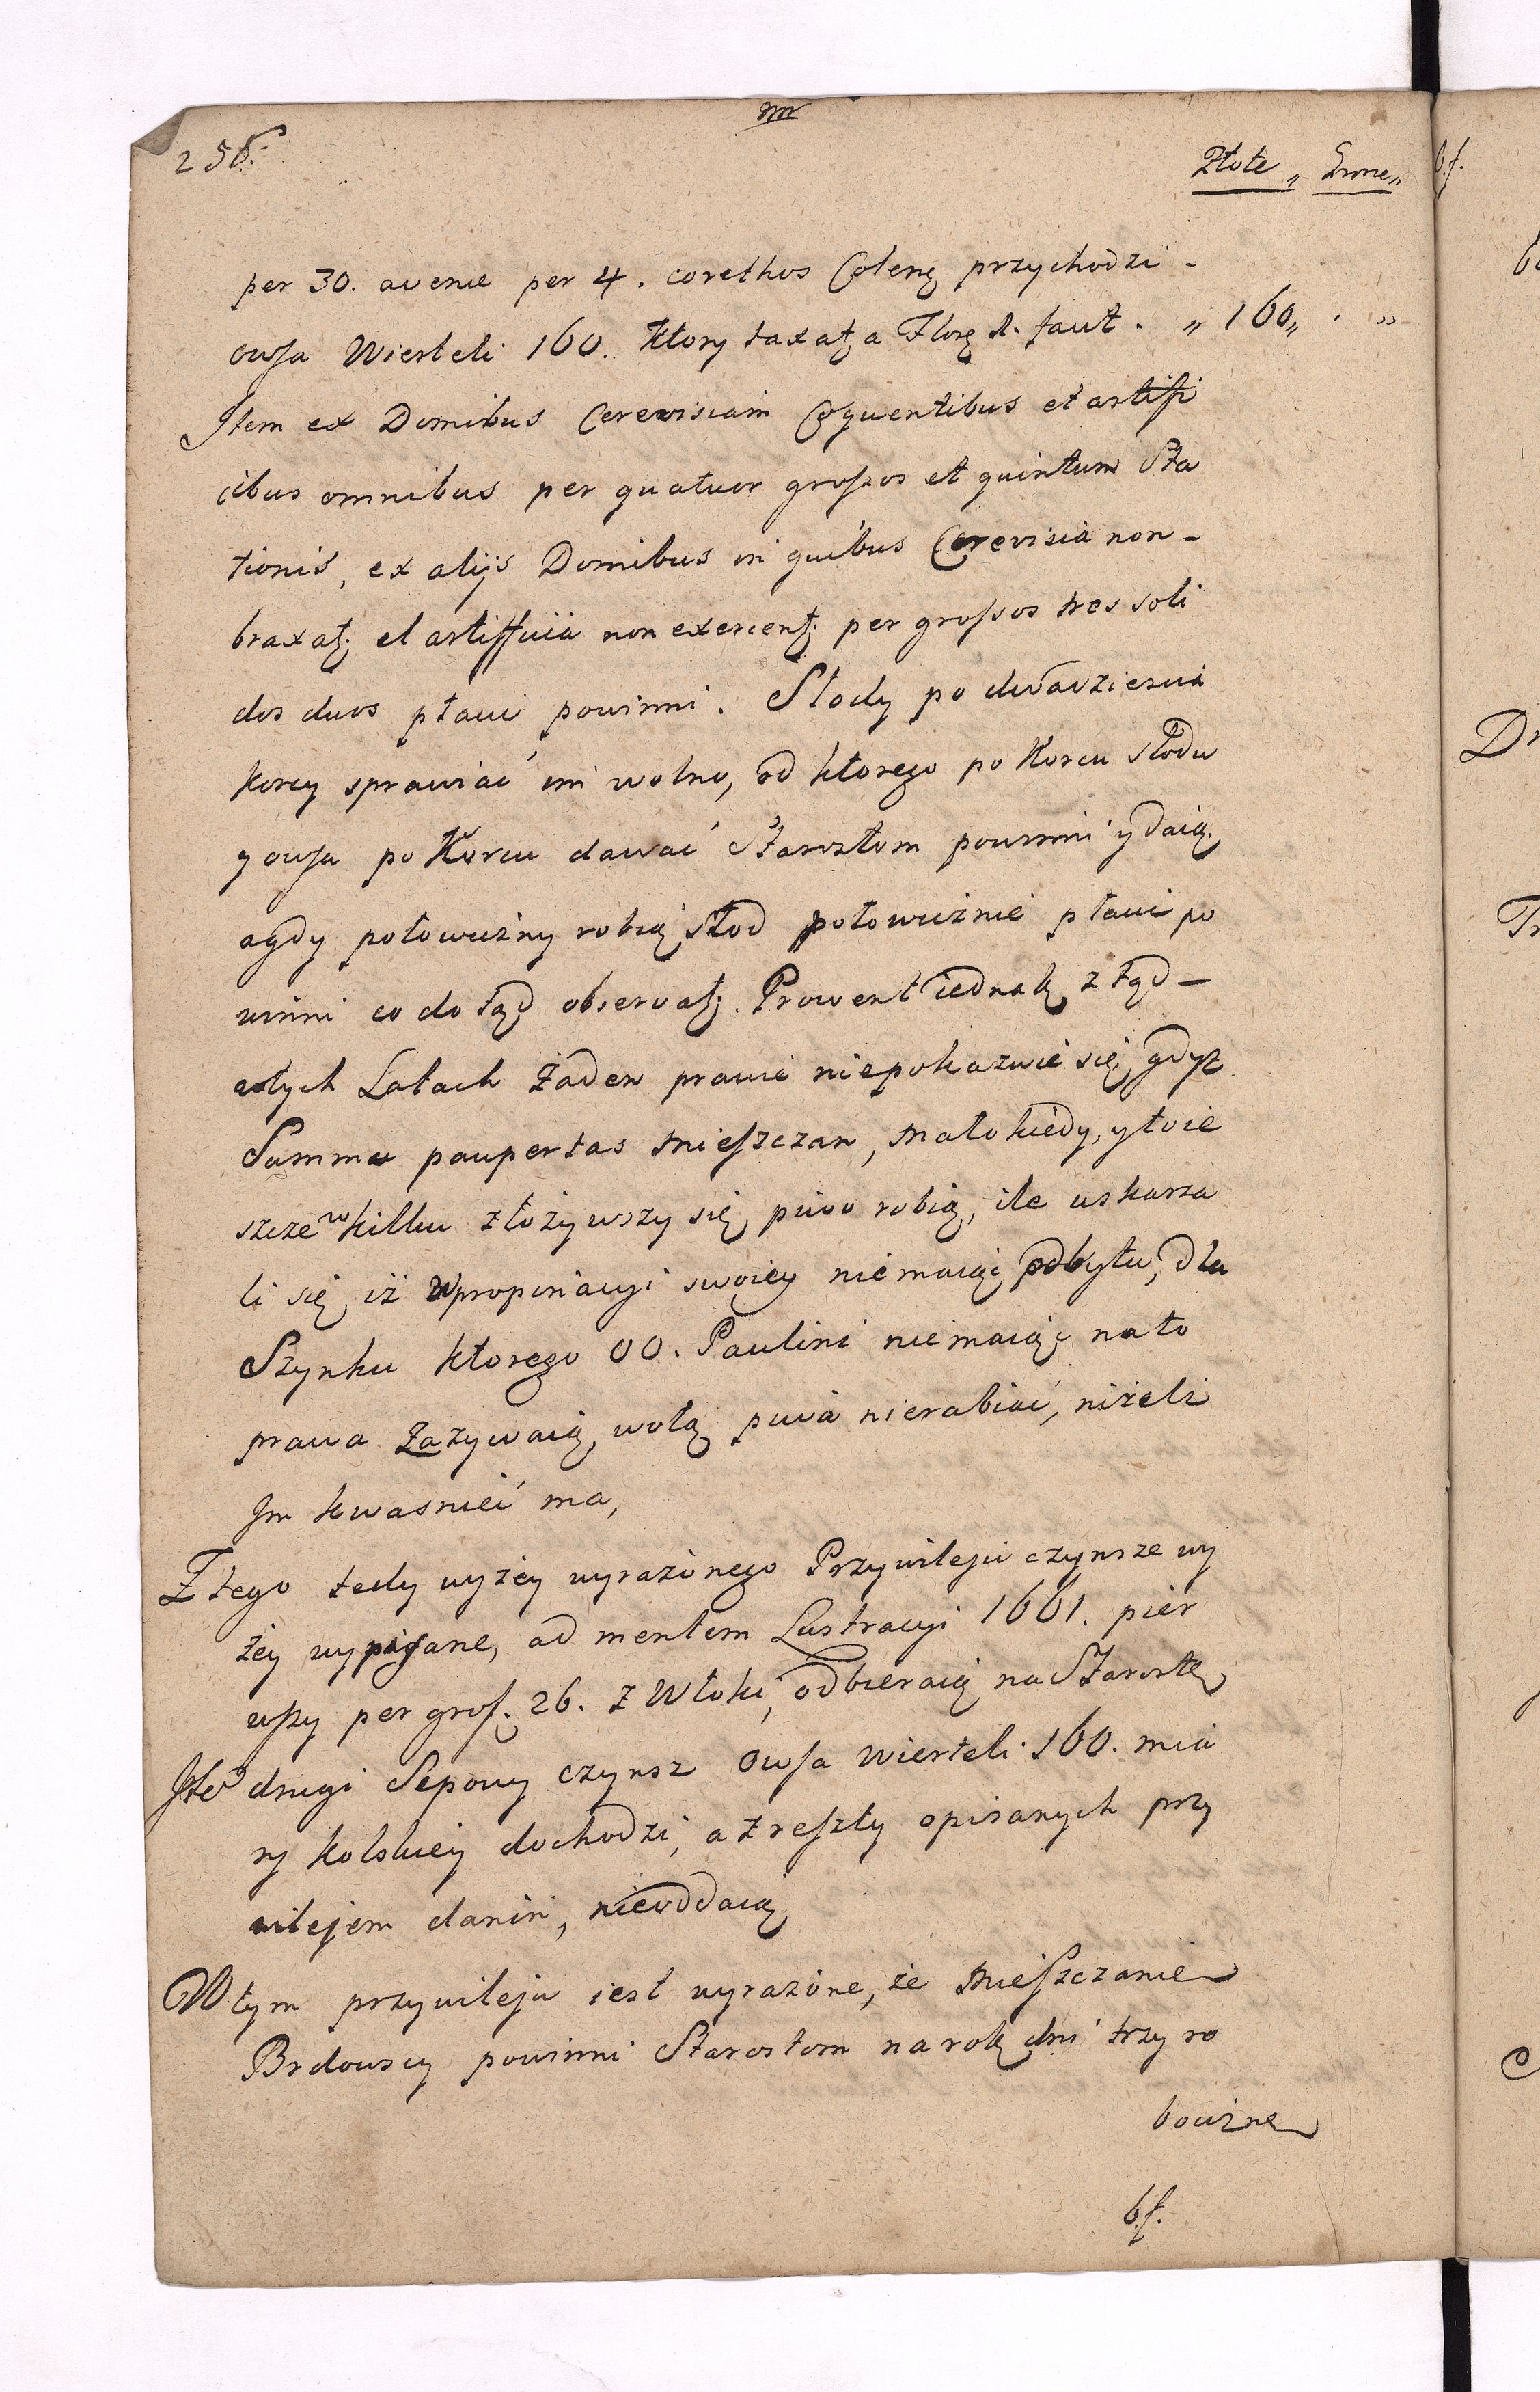 256.
Złote „ Grosze „
per 30. avenæ per 4. corethos Colenẽ przychodzi -
owsa Wierteli 160. Ktory taxatȩ a Florȩ 1. facit . „ 160 „ . „
Item ex Domibus Cerevisiam Coquentibus et artifi
cibus omnibus per quatuor grossos et quintum Sta
tionis, ex alijs Domibus in quibus Cerevisia non -
braxatȩ et artifficia non exercentȩ per grossos tres soli
dos duos płacić powinni. Słody po dwadziescia
korcy sprawiać im wolno, od ktorego po Korcu słodu
y owsa po Korcu dawać Starostom powinni y daią.
a gdy połowiczny robią słod połowicznie płacić po
winni co do tąd observatȩ. Prowent iednak z tąd -
w tych Latach żaden prawie niepokazuie się, gdyż
Summa paupertas Mieszczan, mało kiedy, y to ie
szcze w kilku złożywszy się, piwo robią, ile uskarza
li się, iż w propinacyi swoiey nie maiąc odbytu, dla
Szynku ktorego OO. Paulini nie maiąc na to
prawa zażywaią, wolą piwa nierabiać, niżeli
Im kwasnieć ma,
Z tego tedy wyżey wyrażonego Przywileju czynsze wy
żey wypisane, ad mentem Lustracyi 1661. pier
wszy per gros. 26. z Włoki, odbieraią na Starostę
Ite drugi Sepowy czynsz Owsa wierteli 160. mia
ry kolskiey dochodzi, a z reszty opisanych przy
wilejem danin, nieoddaią
W tym przywileju iest wyrażone, że Mieszczanie
Brdowscy powinni Starostom na rok dni trzy ro
bocizne
bs.